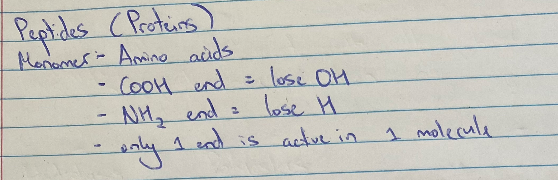 Peptides (Proteins)
Monomer - Amino acids
- COOH end = lose OH
- NH₂ end = lose H
- only 1 end is active in 1 molecule